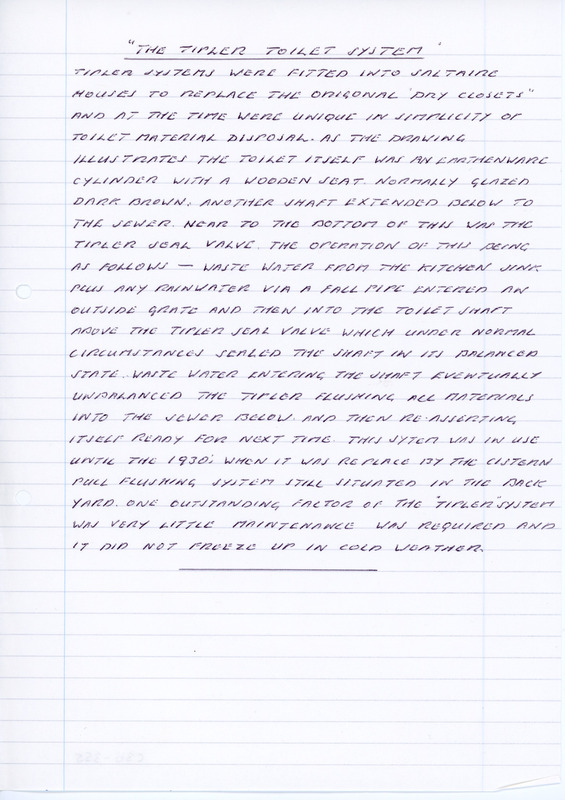 "THE TIPLER TOILET SYSTEM'
TIPLER SYSTEMS WERE FITTED INTO SALTAIRE
HOUSES TO REPLACE THE ORIGONAL 'DRY CLOSETS"
AND AT THE TIME WERE UNIQUE IN SIMPLICITY OF
TOILET MATERIAL DISPOSAL. AS THE DRAWING
ILLUSTRATES THE TOILET ITSELF WAS AN EARTHENWARE
CYLINDER WITH A WOODEN SEAT. NORMALLY GLAZED
DARK BROWN, ANOTHER SHAFT EXTENDED BELOW TO
THE SEWER. NEAR TO THE BOTTOM OF THIS WAS THE
TIPLER SEAL VALVE. THE OPERATION OF THIS BEING
AS FOLLOWS — WASTE WATER FROM THE KITCHEN SINK
PLUS ANY RAINWATER VIA A FALL PIPE ENTERED AN
OUTSIDE GRATE AND THEN INTO THE TOILET SHAFT
ABOVE THE TIPLER SEAL VALVE WHICH UNDER NORMAL
CIRCUMSTANCES SEALED THE SHAFT IN ITS BALANCED
STATE. WASTE WATER ENTERING THE SHAFT EVENTUALLY
UNBALANCED THE TIPLER FLUSHING ALL MATERIALS
INTO THE SEWER BELOW AND THEN RE-ASSERTING
ITSELF READY FOR NEXT TIME. THIS SYTEM WAS IN USE
UNTIL THE 1930'S WHEN IT WAS REPLACE BY THE CISTERN
PULL FLUSHING SYSTEM STILL SITUATED IN THE BACK
YARD. ONE OUTSTANDING FACTOR OF THE "TIPLER" SYSTEM
WAS VERY LITTLE MAINTENANCE WAS REQUIRED AND
IT DID NOT FREEZE UP IN COLD WEATHER.